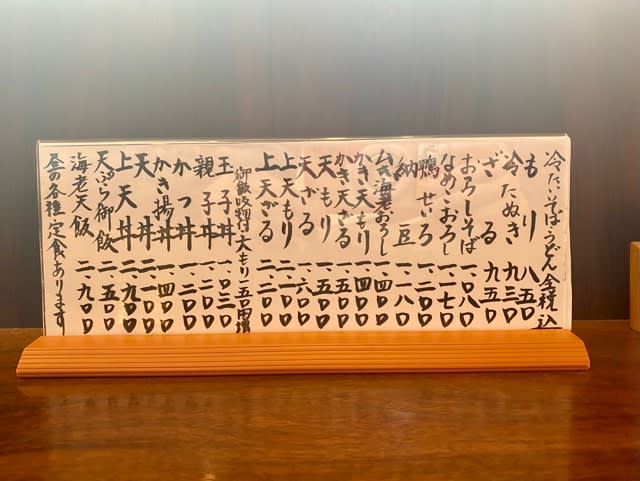 冷たいそば・うどん 全税込
もり 八五〇
冷たぬき 九三〇
ざる 九五〇
おろしそば 一、〇八〇
なめこおろし 一、一七〇
鴨せいろ 一、二〇〇
納豆 一、一八〇
海老おろし 一、四〇〇
かき天もり 一、四〇〇
かき天ざる 一、五〇〇
天もり 一、五〇〇
天ざる 一、六〇〇
上天もり 二、一〇〇
上天ざる 二、二〇〇
御飯吸物付 大もり一五〇円増
玉子丼 一、〇三〇
親子丼 一、二〇〇
かつ丼 一、二〇〇
かき揚丼 一、四〇〇
天丼 二、一〇〇
上天丼 二、九〇〇
天ぷら御飯 二、五〇〇
海老天飯 二、九〇〇
昼の各種定食あります